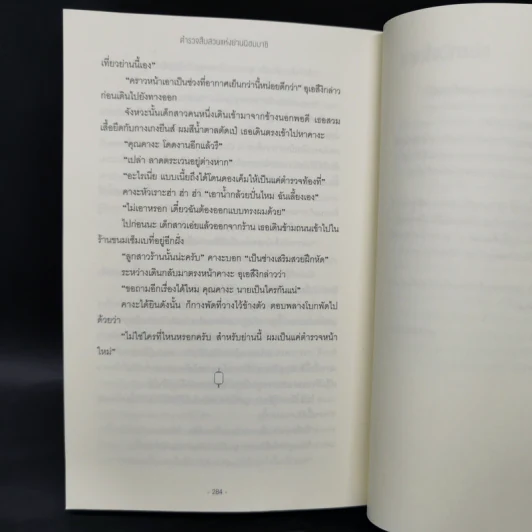 ตำรวจสืบสวนแห่งย่านนิฮมบาชิ
เที่ยวย่านนี้เอง”
“คราวหน้าเอาเป็นช่วงที่อากาศเย็นกว่านี้หน่อยดีกว่า” อุเอสึงิกล่าว
ก่อนเดินไปยังทางออก
จังหวะนั้นเด็กสาวคนหนึ่งเดินเข้ามาจากข้างนอกพอดี เธอสวม
เสื้อยืดกับกางเกงยีนส์ ผมสีน้ำตาลดัดเป๋ เธอเดินตรงเข้าไปหาคางะ
“คุณคางะ โดดงานอีกแล้วรึ”
“เปล่า ลาดตระเวนอยู่ต่างหาก”
“อะไรเนี่ย แบบเนี้ยถึงได้โดนดองเค็มให้เป็นแค่ตำรวจท้องที่”
คางะหัวเราะฮ่า ฮ่า ฮ่า “เอาน้ำกล้วยปั่นไหม ฉันเลี้ยงเอง”
“ไม่เอาหรอก เดี๋ยวฉันต้องออกแบบทรงผมด้วย”
ไปก่อนนะ เด็กสาวเอ่ยแล้วออกจากร้าน เธอเดินข้ามถนนเข้าไปใน
ร้านขนมเซ็มเบที่อยู่อีกฝั่ง
“ลูกสาวร้านนั้นน่ะครับ” คางะบอก “เป็นช่างเสริมสวยฝึกหัด”
ระหว่างเดินกลับมาตรงหน้าคางะ อุเอสึงิกล่าวว่า
“ขอถามอีกเรื่องได้ไหม คุณคางะ นายเป็นใครกันแน่”
คางะได้ยินดังนั้น ก็กางพัดที่วางไว้ข้างตัว ตอบพลางโบกพัดไป
ด้วยว่า
“ไม่ใช่ใครที่ไหนหรอกครับ สำหรับย่านนี้ ผมเป็นแค่ตำรวจหน้า
ใหม่”
- 284 -